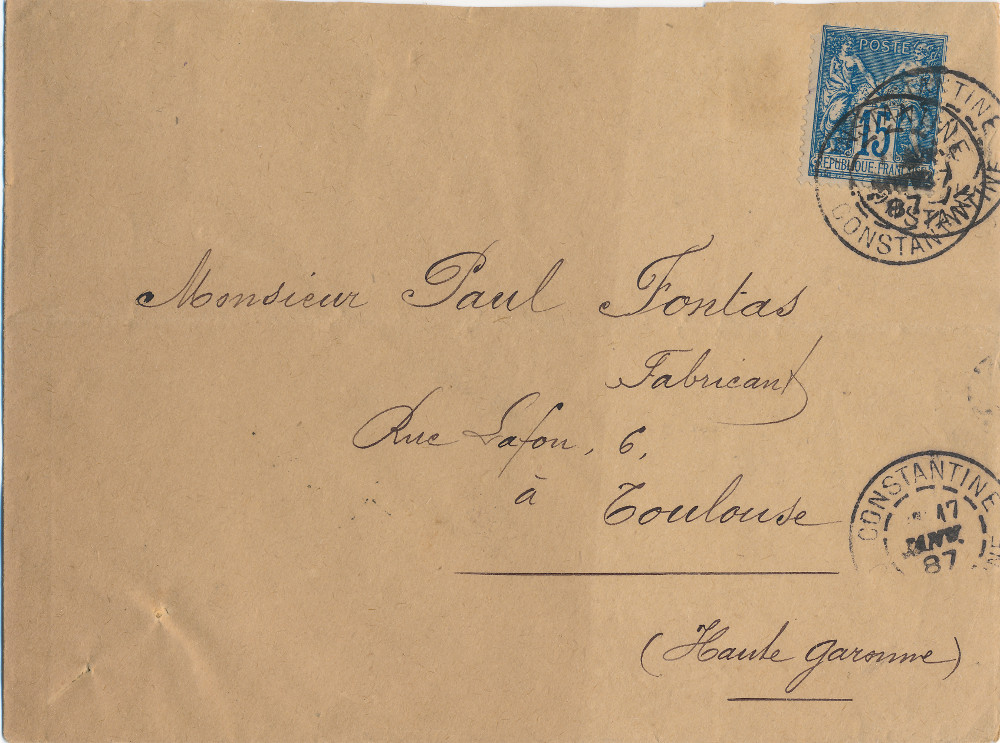 POSTE
15
RÉPUBLIQUE FRANÇAISE
CONSTANTINE
JANV.
87
CONSTANTINE
Monsieur Paul Fontas
Fabricant
Rue Lafon, 6,
à Toulouse
CONSTANTINE
17
JANV.
87
(Haute Garonne)